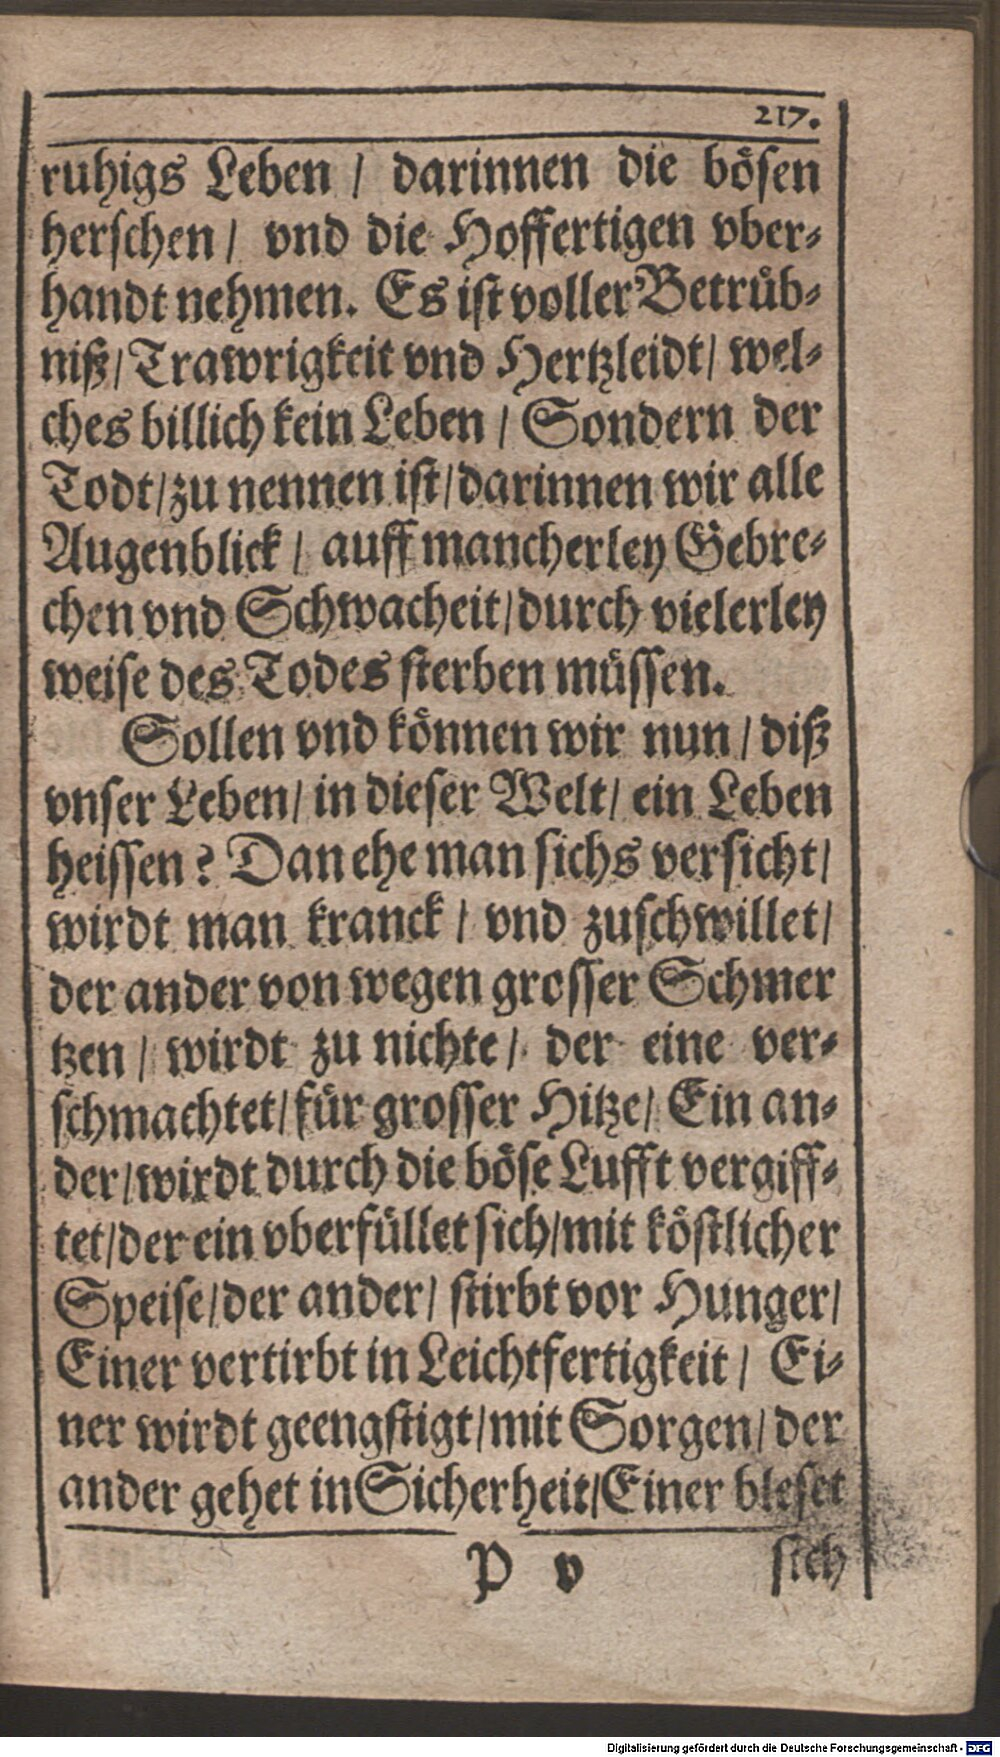 217.
ruhigs Leben / darinnen die bösen
herschen / vnd die Hoffertigen vber-
handt nehmen. Es ist voller Betrüb-
niß / Trawrigkeit vnd Hertzleidt / wel-
ches billich kein Leben / Sondern der
Todt / zu nennen ist / darinnen wir alle
Augenblick / auff mancherley Gebre-
chen vnd Schwacheit / durch vielerley
weise des Todes sterben müssen.
Sollen vnd können wir nun / diß
vnser Leben / in dieser Welt / ein Leben
heissen? Dan ehe man sichs versicht /
wirdt man kranck / vnd zuschwillet /
der ander von wegen grosser Schmer
tzen / wirdt zu nichte / der eine ver-
schmachtet / für grosser Hitze / Ein an-
der / wirdt durch die böse Lufft vergiff-
tet / der ein vberfüllet sich / mit köstlicher
Speise / der ander / stirbt vor Hunger /
Einer vertirbt in Leichtfertigkeit / Ei-
ner wirdt geengstigt / mit Sorgen / der
ander gehet in Sicherheit / Einer bleset
P v sich
Digitalisierung gefördert durch die Deutsche Forschungsgemeinschaft - DFG